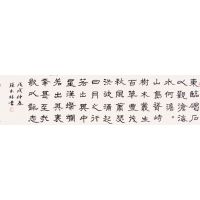 東臨碣石
以觀滄海
水何澹澹
山島竦峙
樹木叢生
百草豐茂
秋風蕭瑟
洪波涌起
日月之行
若出其中
星漢燦爛
若出其裏
幸甚至哉
歌以詠志
戊戌仲春